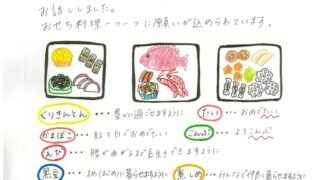 お話ししました。
おせち料理一つ一つに願いが込められています。
くりきんとん … 豊かに過ごせますように
たい … おめでたい
かまぼこ … 紅と白でおめでたい
こんぶ … よろこんぶ
えび … 腰が曲がるまで長生きできますように
黒豆 … まめ(まじめ)に暮らせますように
煮しめ … みんなで仲良く暮らせますように